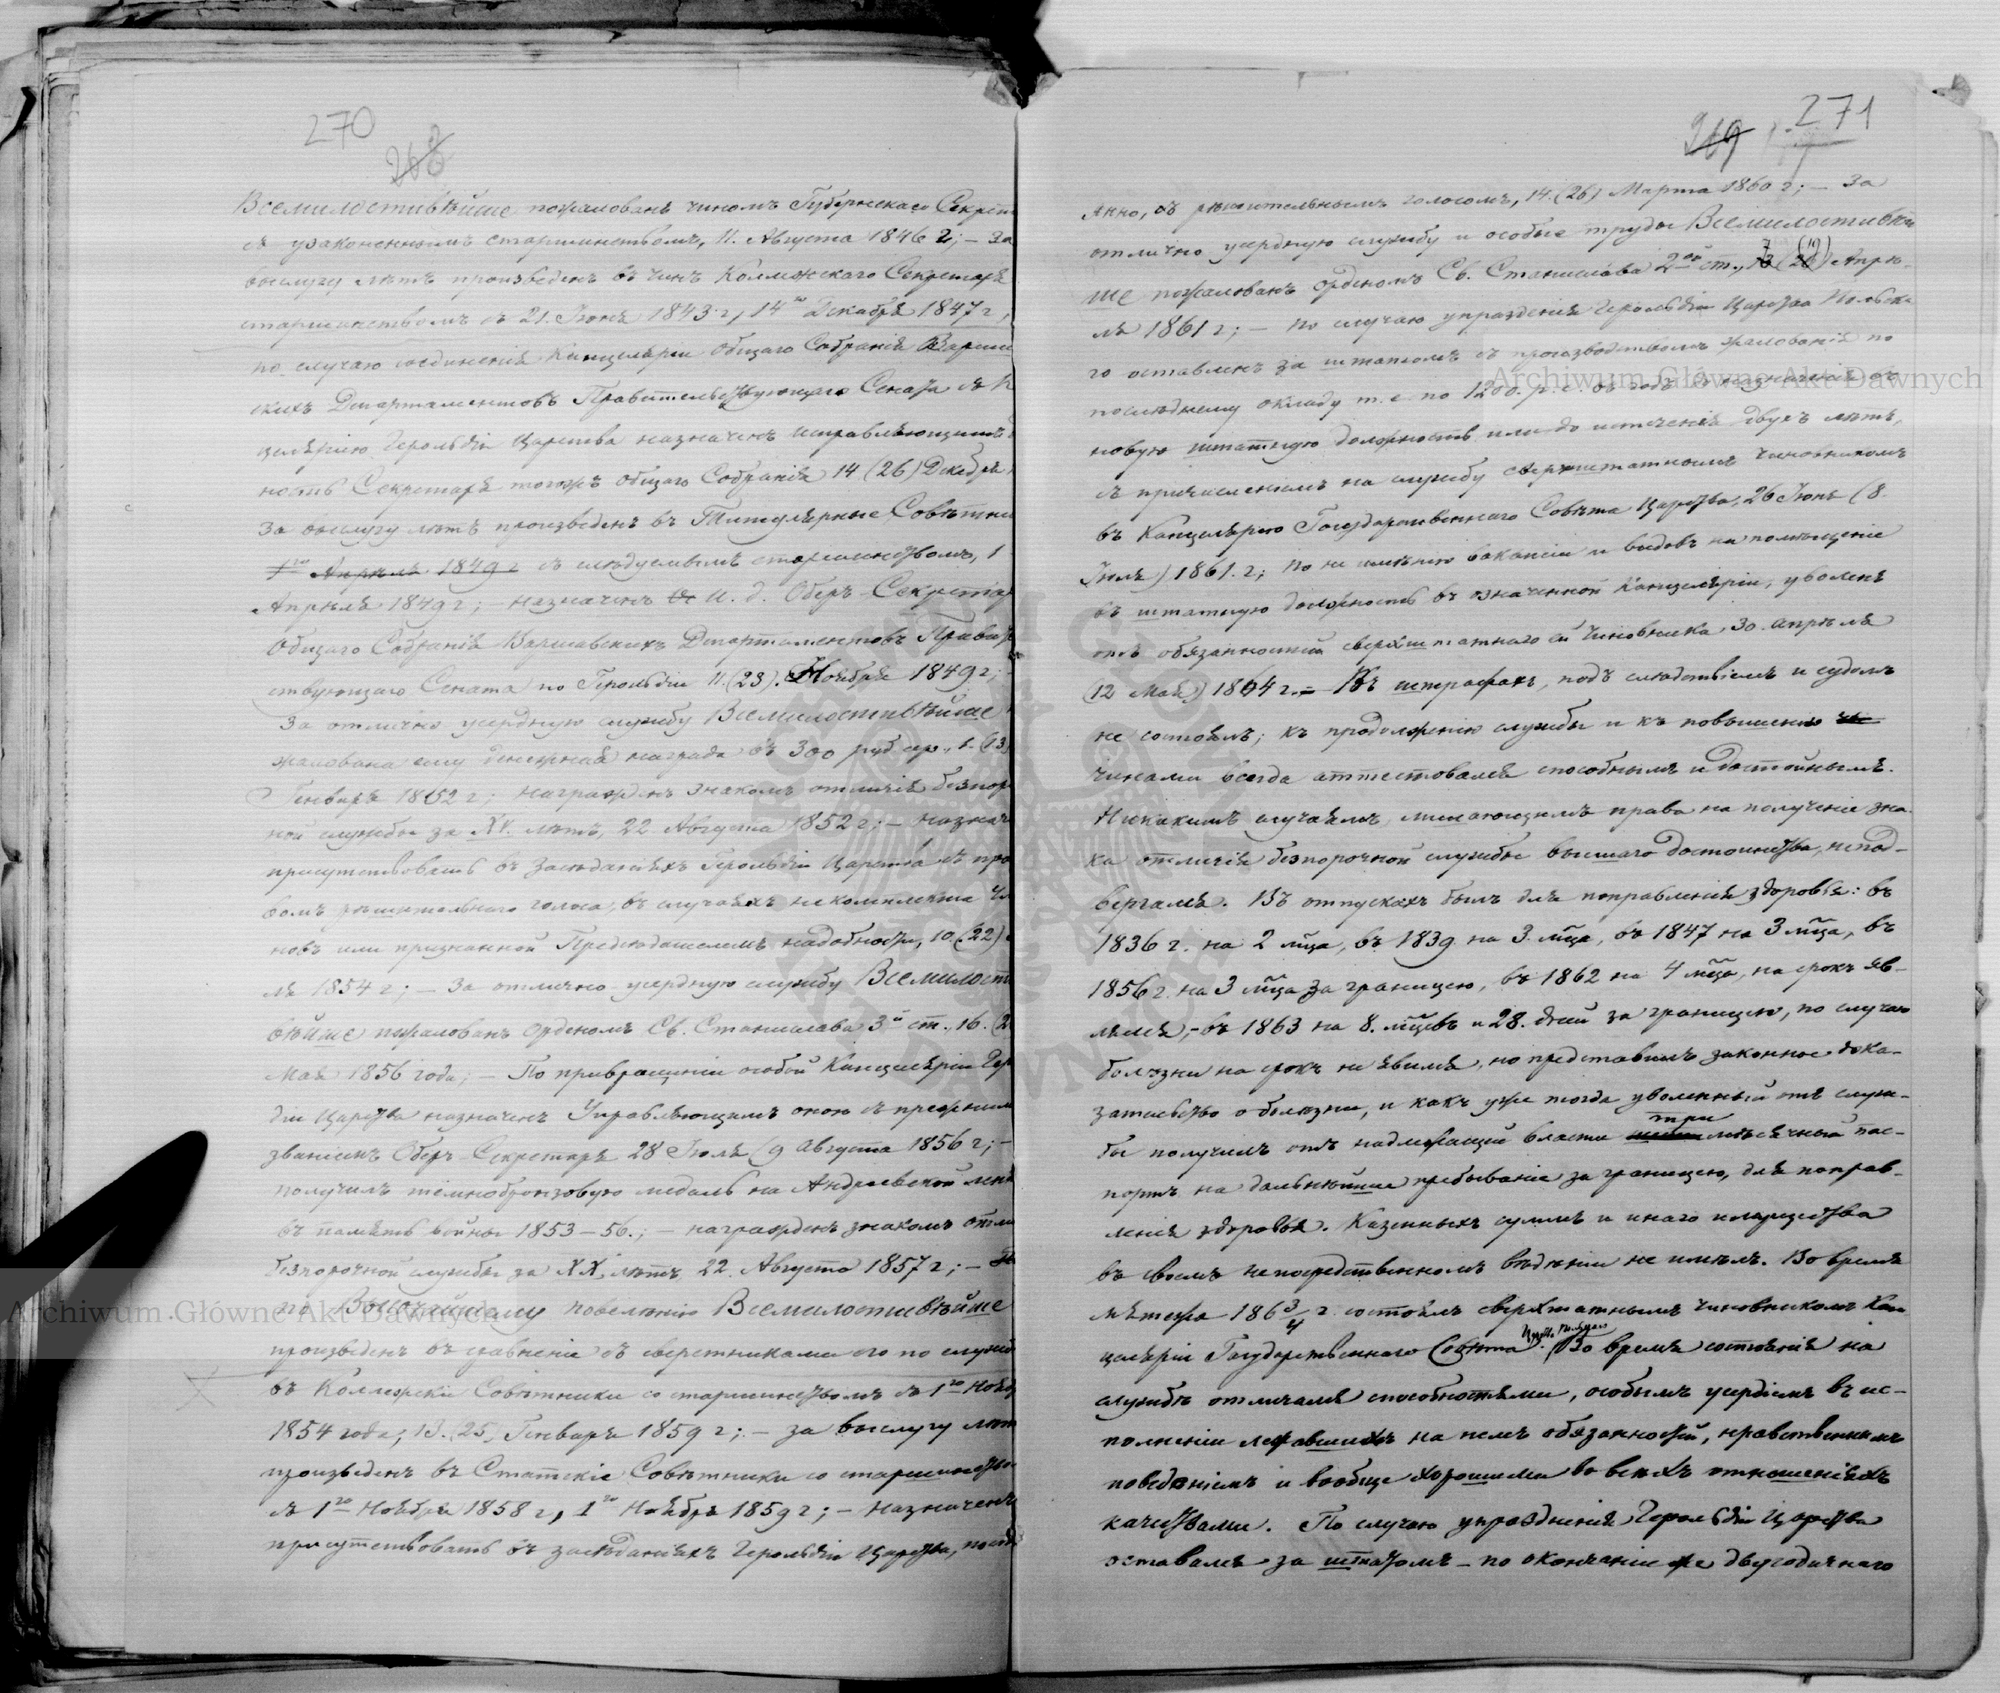 270
268
Всемилостивѣйше пожалованъ чиномъ Губернскаго Секрет
съ узаконеннымъ старшинствомъ, 11. Августа 1846 г; – За
выслугу лѣтъ произведенъ въ чинъ Коллежскаго Секретаря
старшинствомъ съ 21. Іюня 1843 г, 14го Декабря 1847 г,
по случаю соединенія Канцеляріи Общаго Собранія Варшав
скихъ Департаментовъ Правительствующаго Сената съ К
целяріею Герольдіи Царства назначенъ исправляющимъ
ность Секретаря тогожъ общаго Собранія 14 (26) Декабря
За выслугу лѣтъ произведенъ въ Титулярные Совѣтни
1го Апрѣля 1849 г съ слѣдуемымъ старшинствомъ, 1
Апрѣля 1849 г; – назначенъ И. д. Оберъ-Секретар
Общаго Собранія Варшавскихъ Департаментовъ Правит
ствующаго Сената по Герольдіи 11.(23). Ноября 1849 г;
За отлично усердную службу Всемилостивѣйше
жалована ему денежная награда въ 300 руб. сер., 1. (13)
Генваря 1852 г; награжденъ знакомъ отличія безпор
ной службы за XV. лѣтъ, 22 Августа 1852 г; – назнач
присутствовать въ засѣданіяхъ Герольдіи Царства съ пра
вомъ рѣшительнаго голоса, въ случаяхъ некомплекта Чл
новъ или признанной Предсѣдателемъ надобности, 10. (22)
ля 1854 г; – За отлично усердную службу Всемилост
вѣйше пожалованъ Орденомъ Св. Станислава 3й ст., 16. (2
Мая 1856 года; – По превращеніи особой Канцеляріи Гер
діи Царства назначенъ Управляющимъ оною съ прежнимъ
званіемъ Оберъ-Секретаря 28 Іюля (9 Августа 1856 г; –
получилъ темнобронзовую медаль на Андреевской лен
въ память войны 1853–56.; – награжденъ знакомъ отли
безпорочной службы за XX. лѣтъ 22. Августа 1857 г; –
по Высочайшему повелѣнію Всемилостивѣйше
произведенъ въ сравненіе съ сверстниками его по служб
въ Коллежскіе Совѣтники со старшинствомъ съ 1го Нояб
1854 года, 13. (25) Генваря 1859 г; – за выслугу лѣт
произведенъ въ Статскіе Совѣтники со старшинство
съ 1го Ноября 1858 г, 1го Ноября 1859 г; – назначенъ
присутствовать въ засѣданіяхъ Герольдіи Царства, посто
271
269
янно, съ рѣшительнымъ голосомъ, 14. (26) Марта 1860 г; – За
отлично усердную службу и особые труды Всемилостивѣй
ше пожалованъ Орденомъ Св. Станислава 2ой ст., 7 (19) Апрѣ-
ля 1861 г; – по случаю упраздненія Герольдіи Царства Польска
го оставленъ за штатомъ съ производствомъ жалованія по
послѣднему окладу т. е. по 1200. р. с. въ годъ до назначенія въ
новую штатную должность или до истеченія двухъ лѣтъ,
съ причисленіемъ на службу сверхштатнымъ чиновникомъ
въ Канцелярію Государственнаго Совѣта Царства, 26 Іюня (8
Іюля) 1861. г; по не имѣнію вакансіи и видовъ на помѣщеніе
въ штатную должность въ означенной Канцеляріи, уволенъ
отъ обязанностей сверхштатнаго ея Чиновника 30. Апрѣля
(12 Мая) 1864 г. – Въ штрафахъ, подъ слѣдствіемъ и судомъ
не состоялъ; къ продолженію службы и къ повышенію
чинами всегда аттестовался способнымъ и достойнымъ.
Никакимъ случаямъ, лишающимъ права на полученіе зна-
ка отличія безпорочной службы высшаго достоинства, непод-
вергался. Въ отпускахъ былъ для поправленія здоровья: въ
1836 г. на 2 мца, въ 1839 на 3. мца, въ 1847 на 3 мца, въ
1856 г. на 3 мца за границею, въ 1862 на 4 мца, на срокъ яв-
лялся, – въ 1863 на 8. мцевъ и 28. дней за границею, по случаю
болѣзни на срокъ не явился, но представилъ законное дока-
зательство о болѣзни, и какъ уже тогда уволенный отъ служ-
бы получилъ отъ надлежащей власти три мѣсячный пас-
портъ на дальнѣйшее пребываніе за границею, для поправ-
ленія здоровья. Казенныхъ суммъ и инаго имущества
въ своемъ непосредственномъ вѣдѣніи не имѣлъ. Во время
мятежа 186 3/4 г. состоялъ сверхштатнымъ чиновникомъ Кан
целяріи Государственнаго Совѣта Царства Польскаго. Во время состоянія на
службѣ отличался способностями, особымъ усердіемъ въ ис-
полненіи лежавшихъ на немъ обязанностей, нравственнымъ
поведеніемъ и вообще хорошими во всѣхъ отношеніяхъ
качествами. По случаю упраздненія Герольдіи Царства
оставался за штатомъ – по окончаніи же двугодичнаго
Archiwum Główne Akt Dawnych
Archiwum Główne Akt Dawnych